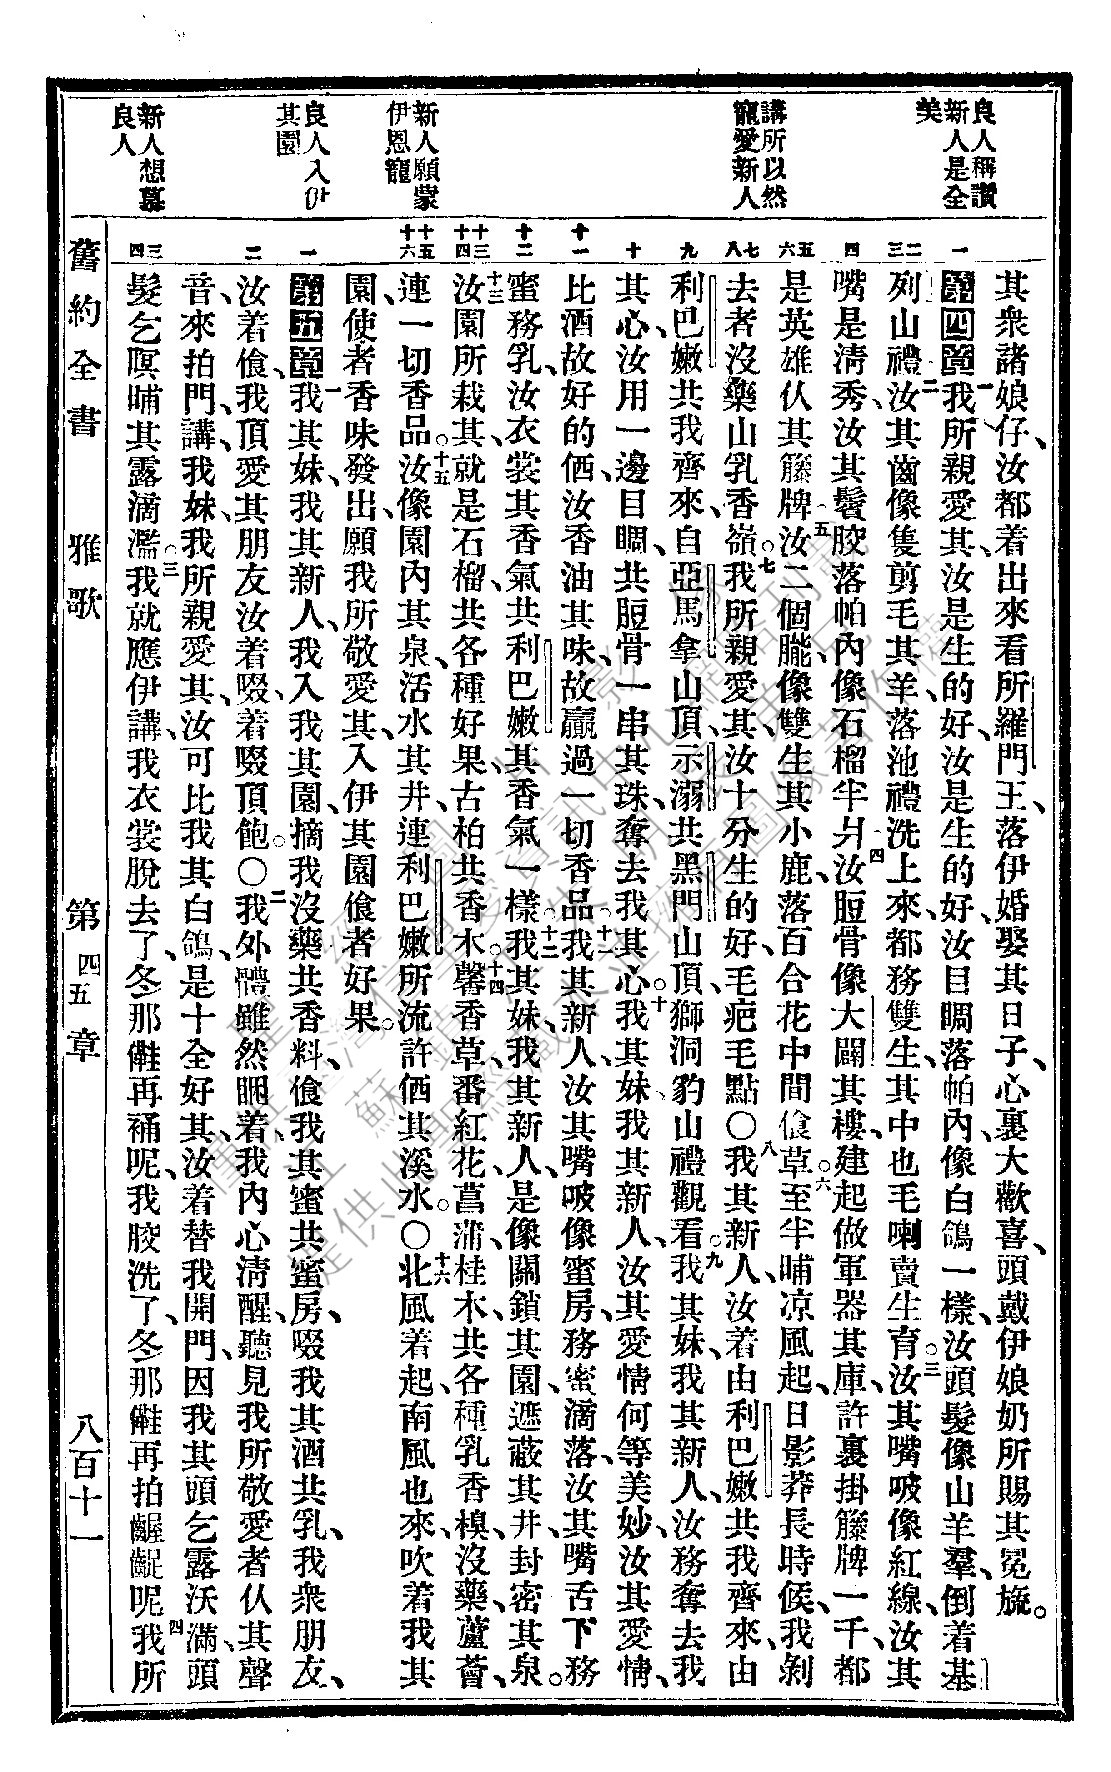 良人稱讚
新人是全
美
講所以然
寵愛新人
新人願蒙
伊恩寵
良人入卬
其園
新人想慕
良人
其衆諸娘仔、汝都着出來看所羅門王、落伊婚娶其日子、心裏大歡喜、頭戴伊娘奶所賜其冕旒。
第四章 一我所親愛其、汝是生的好、汝是生的好、汝目睭落帕內、像白鴿一樣、汝頭髮像山羊羣、倒着基
列山禮、二汝其齒像隻剪毛其羊、落池禮洗上來、都務雙生、其中也毛喇賣生育。三汝其嘴唆像紅線、汝其
嘴是淸秀、汝其鬢胶落帕內、像石榴半爿、四汝脰骨像大闢其樓、建起做軍器其庫、許裏掛籐牌一千、都
是英雄仈其籐牌、五汝二個䏺、像雙生其小鹿、落百合花中間偣草。六至半晡凉風起、日影莽長時候、我剝
去者沒藥山乳香嶺。七我所親愛其、汝十分生的好、毛疤毛點〇八我其新人、汝着由利巴嫩共我齊來、由
利巴嫩共我齊來、自亞馬拿山頂、示溺共黑門山頂、獅洞豹山禮觀看。九我其妹、我其新人、汝務奪去我
其心、汝用一邊目睭、共脰骨一串其珠、奪去我其心。十我其妹、我其新人、汝其愛情何等美妙、汝其愛情、
比酒故好的価、汝香油其味、故贏過一切香品。十一我其新人、汝其嘴唆像蜜房、務蜜滴落、汝其嘴舌下、務
蜜務乳、汝衣裳其香氣、共利巴嫩其香氣一樣。十二我其妹、我其新人、是像關鎖其園、遮蔽其井、封密其泉。
十三汝園所栽其、就是石榴、共各種好果、古柏共香木、十四馨香草、番紅花、菖蒲、桂木、共各種乳香樹、沒藥、蘆薈、
連一切香品。十五汝像園內其泉、活水其井、連利巴嫩所流許価其溪水。〇十六北風着起、南風也來、吹着我其
園、使者香味發出、願我所敬愛其、入伊其園、偣者好果。
第五章 一我其妹、我其新人、我入我其園、摘我沒藥共香料、偣我其蜜共蜜房、啜我其酒共乳、我衆朋友、
汝着偣、我頂愛其朋友、汝着啜、着啜頂飽。〇二我外體雖然睏着、我內心淸醒、聽見我所敬愛者仈其聲
音、來拍門、講、我妹、我所親愛其、汝可比我其白鴿、是十全好其、汝着替我開門、因我其頭乞露沃滿、頭
髮乞暝晡其露滴濫。三我就應伊講、我衣裳脫去了、冬那㒰再裲呢、我胶洗了、冬那㒰再拍齷齪呢、四我所
舊約全書 雅歌 第四五章 八百十一